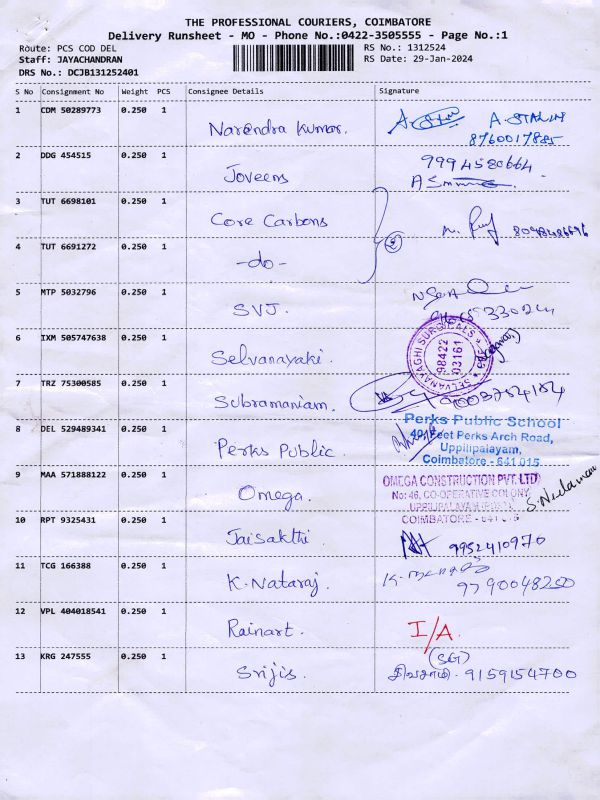 THE PROFESSIONAL COURIERS, COIMBATORE
Delivery Runsheet - MO - Phone No.:0422-3505555 - Page No.:1
Route: PCS COD DEL
RS No.: 1312524
Staff: JAYACHANDRAN
RS Date: 29-Jan-2024
DRS No.: DCJB131252401
S No Consignment No Weight PCS Consignee Details Signature
1 CDM 50289773 0.250 1 Narendra Kumar. A. STALIN
8760017885
2 DDG 454515 0.250 1 Joveens 9994580664
3 TUT 6698101 0.250 1 Core Carbons
4 TUT 6691272 0.250 1 -do-
5 MTP 5032796 0.250 1 SVJ.
6 IXM 505747638 0.250 1 Selvanayaki. SELVANAYAGHI SURGICALS
98422
03161
7 TRZ 75300585 0.250 1 Subramaniam.
8 DEL 529489341 0.250 1 Perks Public. Perks Public School
Feet Perks Arch Road,
Uppilipalayam,
Coimbatore - 641 015
9 MAA 571888122 0.250 1 Omega. OMEGA CONSTRUCTION PVT. LTD
No: 46, CO-OPERATIVE COLONY,
UPPILIPALAYAM
COIMBATORE - 641 015
10 RPT 9325431 0.250 1 Jaisakthi. 9952410970
11 TCG 166388 0.250 1 K. Nataraj. 9790048250
12 VPL 404018541 0.250 1 Rainart. I/A.
13 KRG 247555 0.250 1 Srijis. (SG)
9159154700